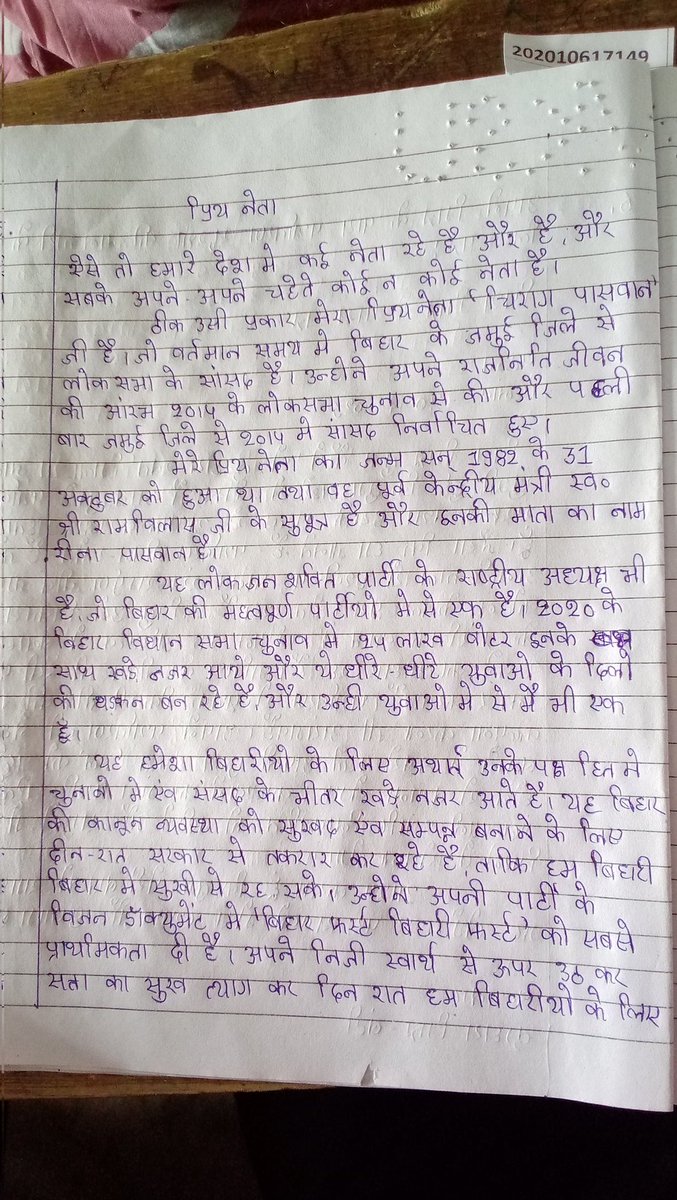 202010617149
प्रिय नेता
ऐसे तो हमारे देश मे कई नेता रहे है और है, और
सबके अपने-अपने चहेते कोई न कोई नेता है।
ठीक उसी प्रकार मेरा प्रिय नेता 'चिराग पासवान'
जी है। जो वर्तमान समय मे बिहार के जमुई जिले से
लोकसभा के सांसद है। उन्होने अपने राजनिति जीवन
की आंरम २०१५ के लोकसभा चुनाव से की और पहली
बार जमुई जिले से २०१५ मे सांसद निर्वाचित हुए।
मेरे प्रिय नेता का जन्म सन् 1982 के 31
अक्टुबर को हुआ था तथा वह पूर्व केन्द्रीय मंत्री स्व०
श्री रामविलास जी के सुपुत्र है और इनकी माता का नाम
रीना पासवान है।
यह लोक जन शक्ति पार्टी के राष्ट्रीय अध्यक्ष भी
है, जो बिहार की महत्वपूर्ण पार्टीयो मे से एक है। २०२० के
बिहार विधान सभा चुनाव मे २५ लाख वोटर इनके
साथ खड़े नजर आये और ये धीरे-धीरे युवाओ के दिलो
की धड़कन बन रहे है, और उन्ही युवाओ मे से मै भी एक
हुँ।
यह हमेशा बिहारीयो के लिए अर्थात उनके पक्ष हित मे
चुनावो मे एंव संसद के भीतर खड़े नजर आते है। यह बिहार
की कानून व्यवस्था को सुखद एंव सम्पन्न बनाने के लिए
दीन-रात सरकार से तकरार कर रहे है, ताकि हम बिहारी
बिहार मे सुखी से रह सके। उन्होने अपनी पार्टी के
विजन डॉक्युमेंट मे 'बिहार फर्स्ट बिहारी फर्स्ट' को सबसे
प्राथमिकता दी है। अपने निजी स्वार्थ से ऊपर उठ कर
सता का सुख त्याग कर दिन रात हम बिहारीयो के लिए